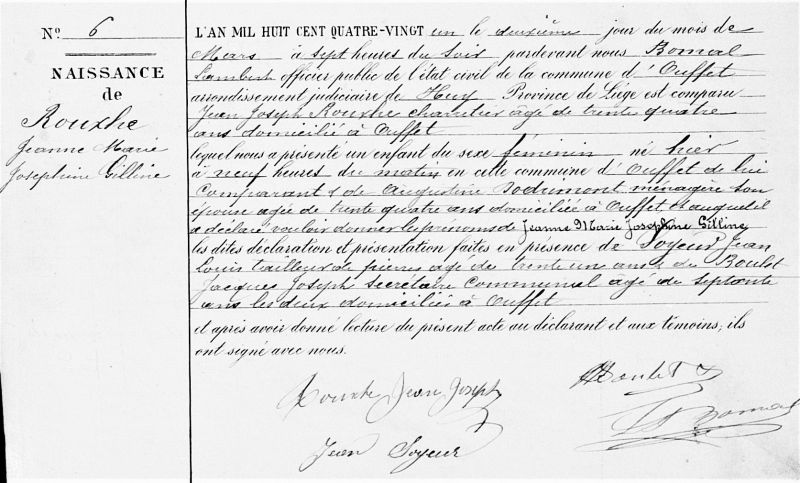 N° 6
NAISSANCE
de
Rouxhe
Jeanne Marie
Josephine Gilline
L'AN MIL HUIT CENT QUATRE-VINGT un le deuxième jour du mois de
Mars à sept heures du soir pardevant nous Bomal
Lambert officier public de l'état civil de la commune d'Ouffet
arrondissement judiciaire de Huy Province de Liége est comparu
Jean Joseph Rouxhe charretier âgé de trente quatre
ans domicilié à Ouffet
lequel nous a présenté un enfant du sexe féminin né hier
à neuf heures du matin en cette commune d'Ouffet de lui
Comparant & de Augustine Dodumont ménagère son
épouse agée de trente quatre ans domiciliée à Ouffet et auquel il
a déclaré vouloir donner les prénoms de Jeanne Marie Josephine Gilline
les dites déclaration et présentation faites en présence de Soyeur Jean
Louis tailleur de pierres agé de trente une ans & de Boulet
Jacques Joseph Secrétaire Communal âgé de septante
ans les deux domiciliés à Ouffet
et après avoir donné lecture du présent acte au déclarant et aux témoins, ils
ont signé avec nous.
Rouxhe Jean Joseph
Boulet
Bomal
Jean Soyeur